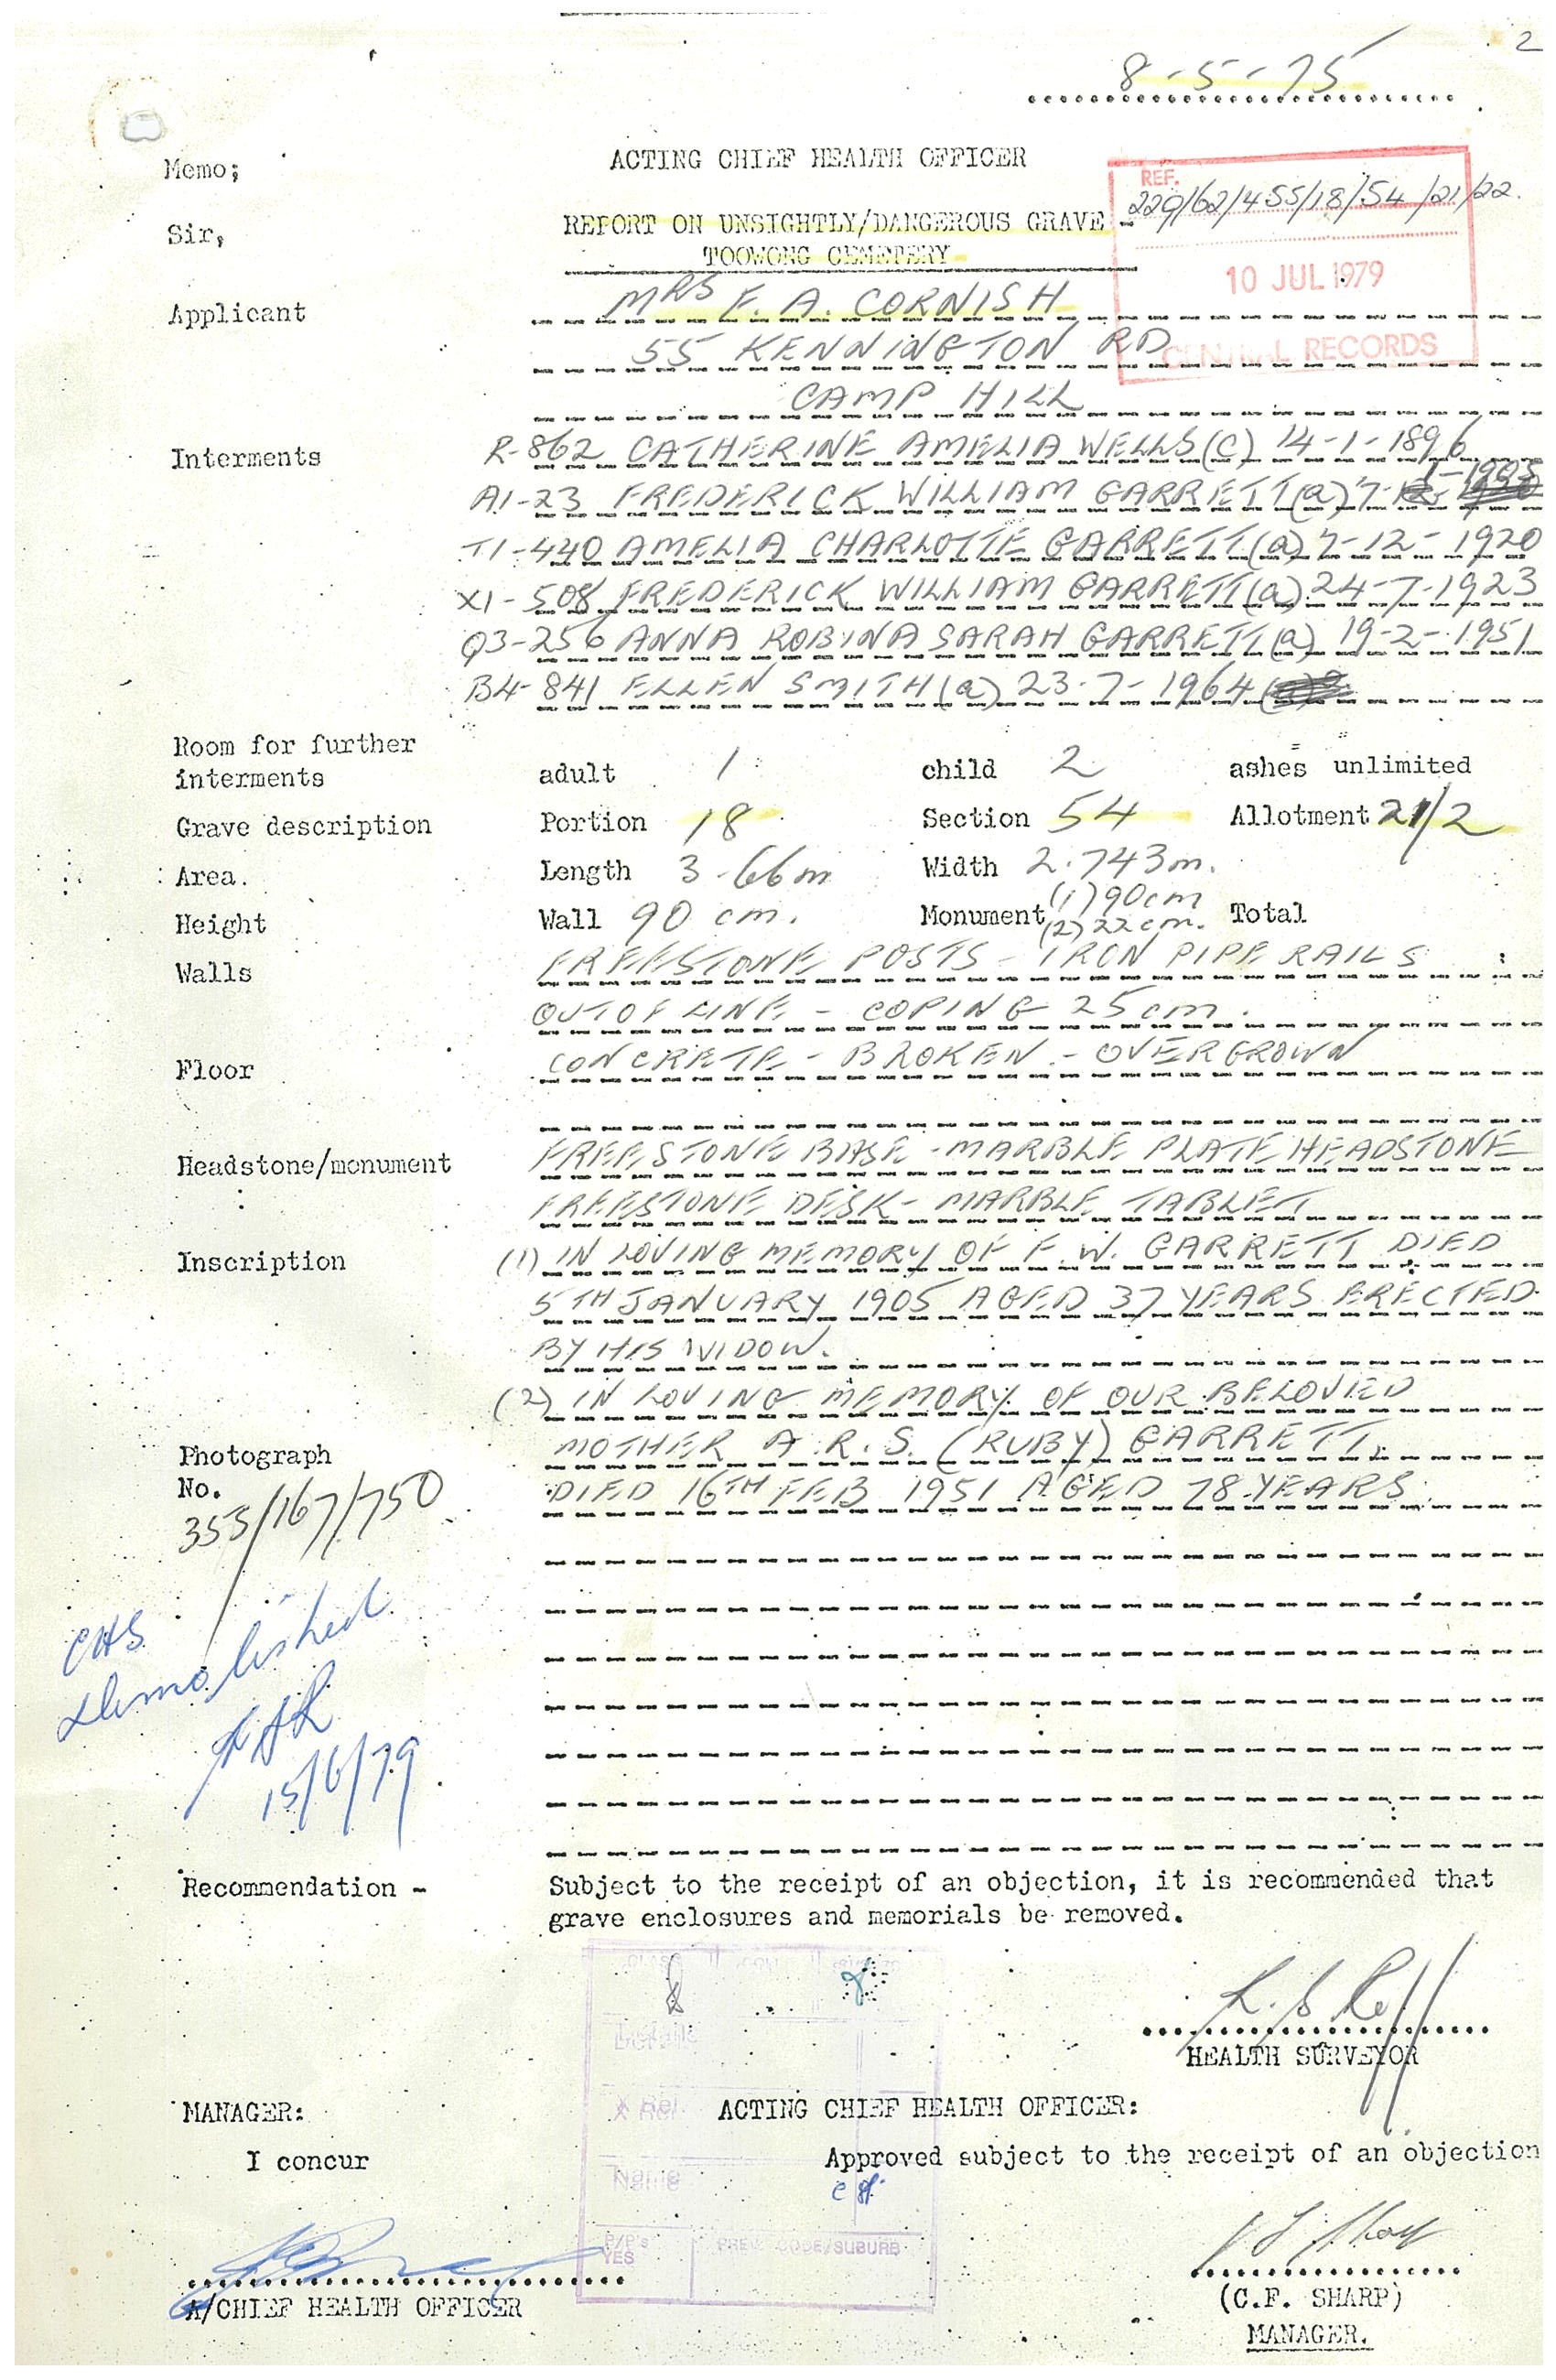 2
8-5-75
Memo;
ACTING CHIEF HEALTH OFFICER
REF.
220/62/455/18/54/21/22.
Sir,
REPORT ON UNSIGHTLY/DANGEROUS GRAVE -
TOOWONG CEMETERY
10 JUL 1979
CENTRAL RECORDS
Applicant MRS F. A. CORNISH
55 KENNINGTON RD
CAMP HILL
Interments R-862 CATHERINE AMELIA WELLS (C) 14-1-1896
A1-23 FREDERICK WILLIAM GARRETT (a) 7-1-1905
T1-440 AMELIA CHARLOTTE GARRETT (a) 7-12-1920
X1-508 FREDERICK WILLIAM GARRETT (a) 24-7-1923
Q3-256 ANNA ROBINA SARAH GARRETT (a) 19-2-1951
B4-841 ELLEN SMITH (a) 23-7-1964
Room for further
interments adult 1 child 2 ashes unlimited
Grave description Portion 18 Section 54 Allotment 21/2
Area. Length 3.66m Width 2.743m.
Height Wall 90 cm. Monument (1) 90cm (2) 22cm. Total
Walls FREESTONE POSTS - IRON PIPE RAILS
OUT OF LINE - COPING 25cm.
Floor CONCRETE - BROKEN - OVERGROWN
Headstone/monument FREESTONE BASE - MARBLE PLATE HEADSTONE
FREESTONE DESK - MARBLE TABLET
Inscription (1) IN LOVING MEMORY OF F. W. GARRETT DIED
5TH JANUARY 1905 AGED 37 YEARS ERECTED
BY HIS WIDOW.
(2) IN LOVING MEMORY OF OUR BELOVED
MOTHER A.R.S. (RUBY) GARRETT.
DIED 16TH FEB 1951 AGED 78 YEARS.
Photograph
No.
355/167/750
CHS
Demolished
15/6/79
Recommendation - Subject to the receipt of an objection, it is recommended that
grave enclosures and memorials be removed.
HEALTH SURVEYOR
Details
X Ref.
Name
P/P's
YES
PREV. CODE/SUBURB
MANAGER: ACTING CHIEF HEALTH OFFICER:
I concur Approved subject to the receipt of an objection
A/CHIEF HEALTH OFFICER
(C.F. SHARP)
MANAGER.